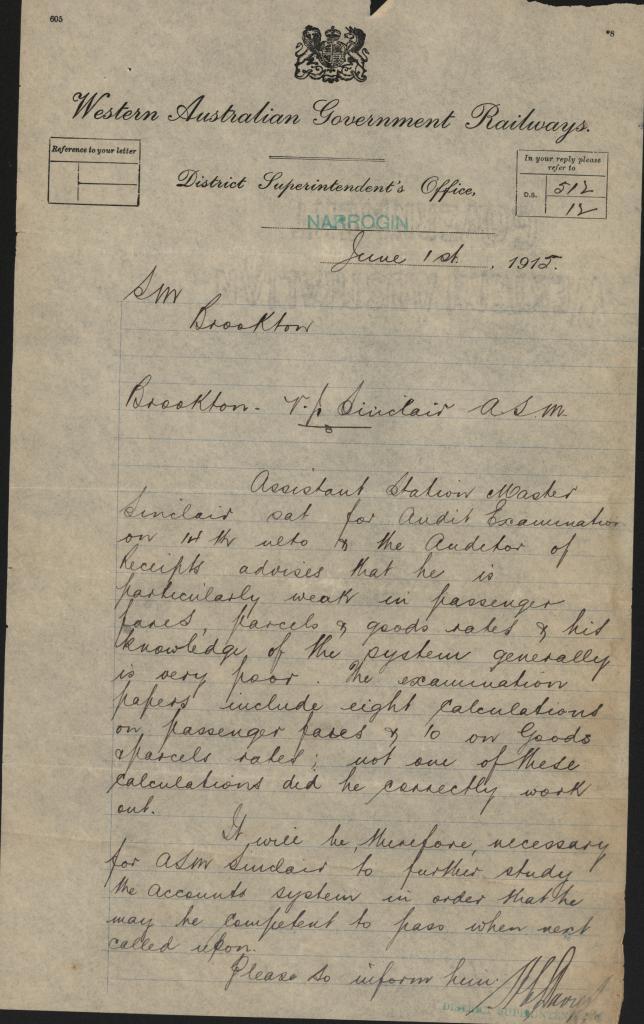 605
*8
Western Australian Government Railways.
Reference to your letter
In your reply please
refer to
D.S. 512
12
District Superintendent's Office,
NARROGIN
June 1st, 1915.
SM
Brookton
Brookton - Sinclair A.S.M.
Assistant Station Master
Sinclair sat for Audit Examination
on ulto & the Auditor of
Receipts advises that he is
particularly weak in passenger
fares, parcels & goods rates & his
knowledge of the system generally
is very poor. The examination
papers include eight calculations
on passenger fares & 10 on Goods
& parcels rates; not one of these
calculations did he correctly work
out.
It will be, therefore, necessary
for ASM Sinclair to further study
the accounts system in order that he
may be competent to pass when next
called upon.
Please so inform him.
DISTRICT SUPERINTENDENT